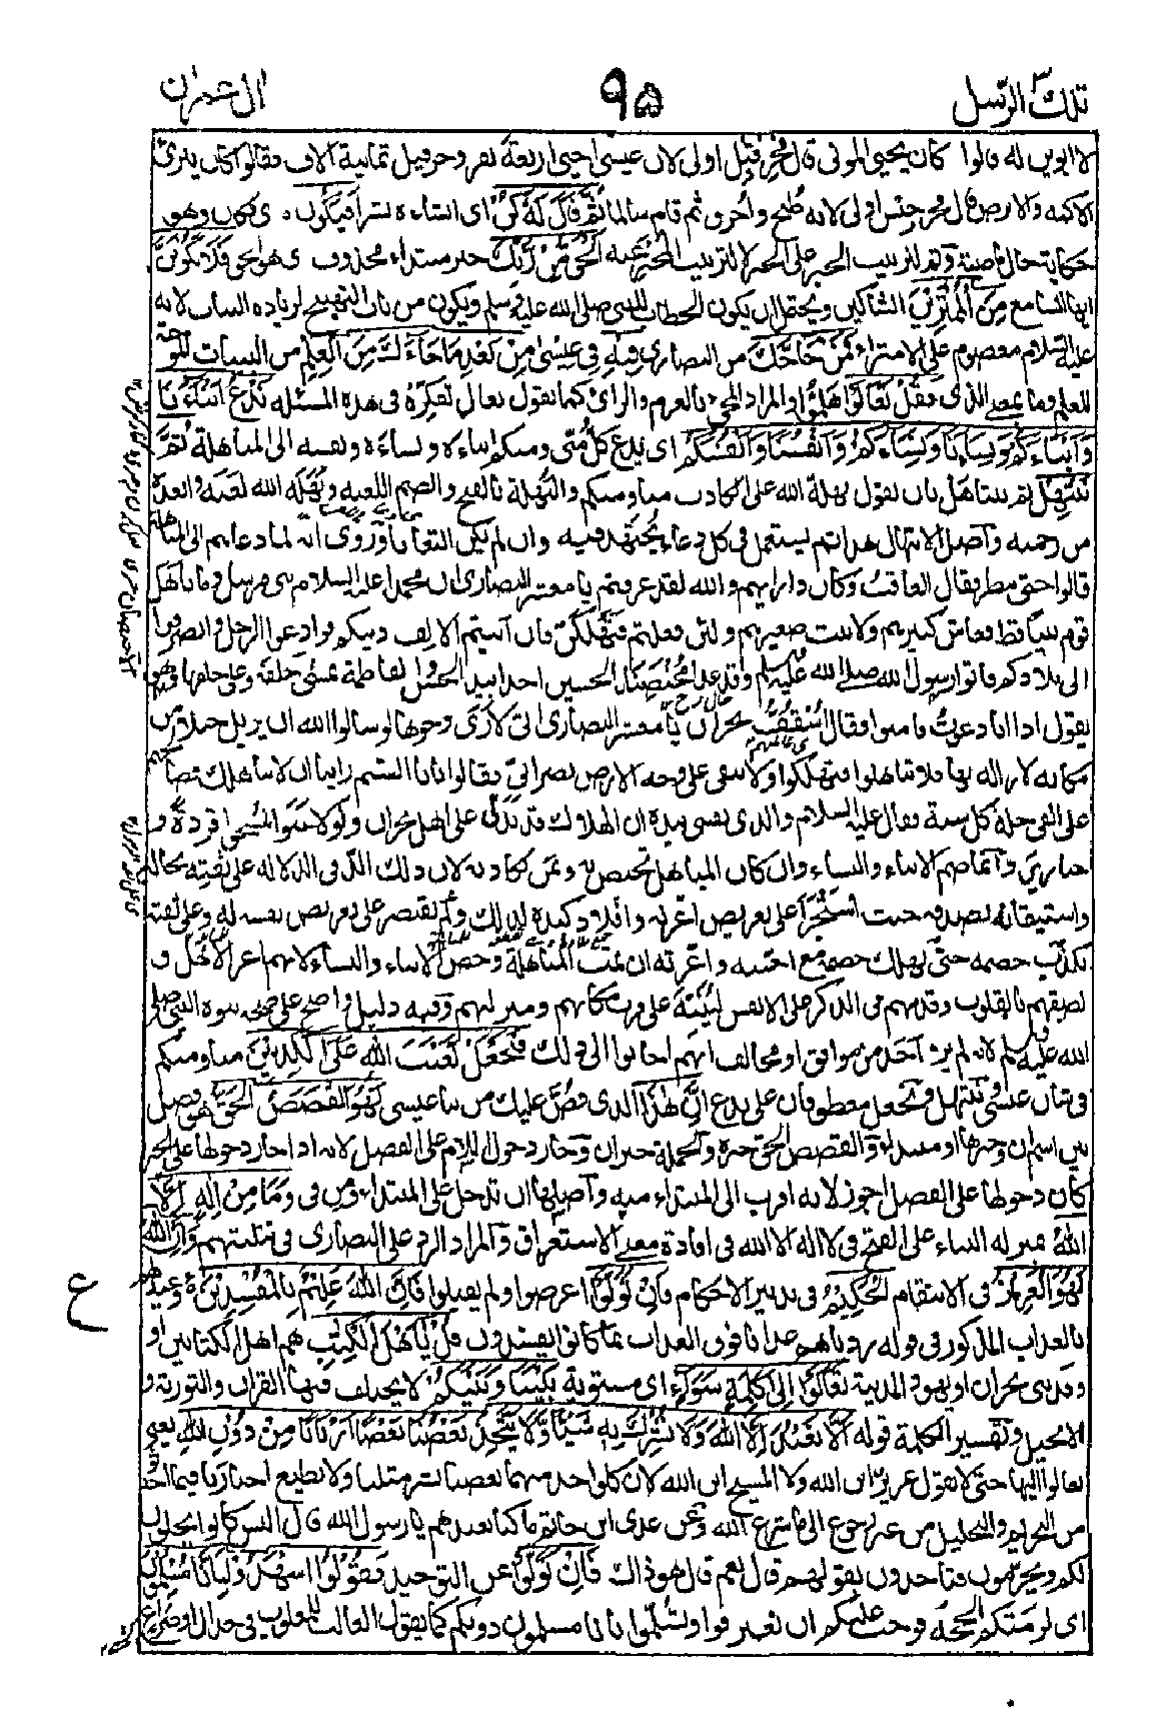 تلك الرسل ٩٥ ال عمران
لا ابوين له قالوا كان يحيي الموتى قال فحزقيل اولى لان عيسى احيى اربعة نفر وحزقيل ثمانية الاف فقالوا كان يبرئ
الاكمه والابرص قال فجرجيس اولى لانه طبخ واحرق ثم قام سالما ثم قال له كن اى انشاءه بشرا فيكون اى فكان وهو
حكاية حال ماضية وثم لترتيب الخبر على الخبر لا لترتيب المخبر عنه الحق من ربك خبر مبتداء محذوف اى هو الحق فلا تكونن
ايها السامع من الممترين الشاكين ويحتمل ان يكون الخطاب للنبى صلى الله عليه وسلم ويكون من باب التهييج لزيادة الثبات لانه
عليه السلام معصوم على الامتراء فمن حاجك من النصارى فيه فى عيسى من بعد ما جاءك من العلم من البينات الموجبة
للعلم وما بمعنى الذى فقل تعالوا هلموا والمراد المجئ بالعزم والراى كما تقول تعال تفكر فى هذه المسئلة ندع ابناءنا
وابناءكم ونساءنا ونساءكم وانفسنا وانفسكم اى يدع كل منى ومنكم ابناءه ونساءه ونفسه الى المباهلة ثم
نبتهل ثم نتباهل بان نقول بهلة الله على الكاذب منا ومنكم والبهلة بالفتح والضم اللعنة وبهله الله لعنه وابعده
من رحمته واصل الابتهال هذا ثم يستعمل فى كل دعاء يجتهد فيه وان لم يكن التعانا وروى انه لما دعاهم الى المباهلة
قالوا حتى ننظر فقال العاقب وكان ذا رايهم والله لقد عرفتم يا معشر النصارى ان محمدا عليه السلام نبى مرسل وما باهل
قوم نبيا قط فعاش كبيرهم ولا نبت صغيرهم ولئن فعلتم لتهلكن فان ابيتم الا الف دينكم فوادعوا الرجل وانصرفوا
الى بلادكم فاتوا رسول الله صلى الله عليه وسلم وقد غدا محتضنا الحسين اخذا بيد الحسن وفاطمة تمشى خلفه وعلى خلفها وهو
يقول اذا انا دعوت فامنوا فقال اسقف نجران يا معشر النصارى انى لارى وجوها لو سالوا الله ان يزيل جبلا من
مكانه لازاله بها فلا تباهلوا فتهلكوا ولا يبقى على وجه الارض نصرانى فقالوا يا ابا القسم راينا ان لا نباهلك فصالحهم
على الفى حلة كل سنة فقال عليه السلام والذى نفسى بيده ان الهلاك قد تدلى على اهل نجران ولو لاعنوا لمسخوا قردة و
خنازير وانما ضم الابناء والنساء وان كان المباهلة تختص به وبمن كاذبه لان ذلك اكد فى الدلالة على ثقته بحاله
واستيقانه بصدقه حيث استجرأ على تعريض اعزته وافلاذ كبده لذلك ولم يقتصر على تعريض نفسه له وعلى ثقته
بكذب خصمه حتى يهلك خصمه مع احبته واعزته ان تمت المباهلة وخص الابناء والنساء لانهم اعز الاهل و
الصقهم بالقلوب وقدمهم فى الذكر على الانفس لينبه على قرب مكانهم ومنزلتهم وفيه دليل واضح على صحة نبوة النبى صلى
الله عليه وسلم لانه لم يرو احد من موافق او مخالف انهم اجابوا الى ذلك فنجعل لعنت الله على الكذبين منا ومنكم
فى شان عيسى ونبتهل ونجعل معطوفان على ندع ان هذا الذى قص عليك من نبا عيسى لهو القصص الحق هو فصل
بين اسم ان وخبرها او مبتداء والقصص الحق خبره والجملة خبر ان وجاز دخول اللام على الفصل لانه اذا جاز دخولها على الخبر
كان دخولها على الفصل اجوز لانه اقرب الى المبتداء منه واصلها ان تدخل على المبتداء ومن فى وما من اله الا
الله بمنزلة البناء على الفتح فى لا اله الا الله فى افادة معنى الاستغراق والمراد الرد على النصارى فى تثليثهم وان الله
لهو العزيز فى الانتقام الحكيم فى تدبير الاحكام فان تولوا اعرضوا ولم يقبلوا فان الله عليم بالمفسدين وعيد لهم
بالعذاب المذكور فى قوله زدناهم عذابا فوق العذاب بما كانوا يفسدون قل ياهل الكتب هم اهل الكتابين او
وفد بنى نجران او يهود المدينة تعالوا الى كلمة سواء اى مستوية بيننا وبينكم لا يختلف فيها القران والتورية و
الانجيل وتفسير الكلمة قوله الا نعبد الا الله ولا نشرك به شيئا ولا يتخذ بعضنا بعضا اربابا من دون الله يعنى
تعالوا اليها حتى لا نقول عزير ابن الله ولا المسيح ابن الله لان كل واحد منهما بعضنا بشر مثلنا ولا نطيع احبارنا فيما احدثوا
من التحريم والتحليل من غير رجوع الى ما شرع الله وعن عدى ابن حاتم ما كنا نعبدهم يا رسول الله قال اليس كانوا يحلون
لكم ويحرمون فتاخذون بقولهم قال نعم قال هو ذاك فان تولوا عن التوحيد فقولوا اشهدوا بانا مسلمون
اى لزمتكم الحجة فوجب عليكم ان تعترفوا وتسلموا بانا مسلمون دونكم كما يقول الغالب للمغلوب فى جدال او صراع
ع